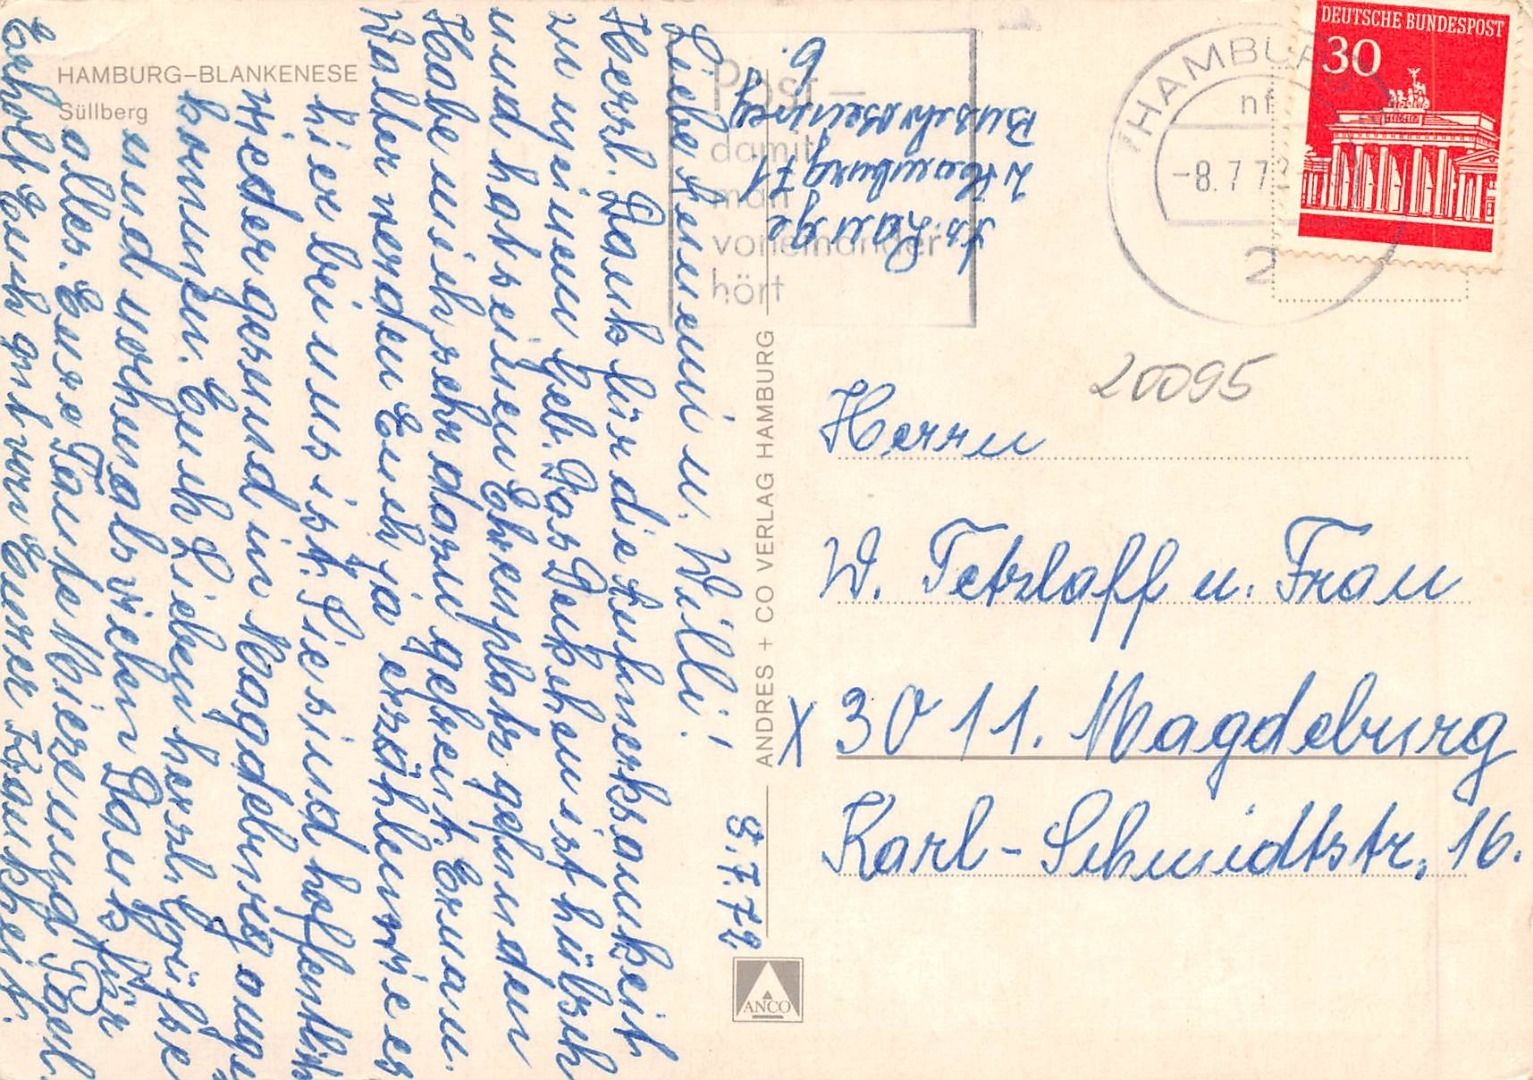 HAMBURG-BLANKENESE
Süllberg
8.7.72
Liebe Henni u. Willi!
Herzl. Dank für die Aufmerksamkeit
zu meinem Geb. Das Deckchen ist hübsch
und hat seinen Ehrenplatz gefunden
Habe mich sehr dazu gefreut. Erna u.
Walter werden Euch ja erzählen wie es
hier bei uns ist. Sie sind hoffentlich
wieder gesund in Magdeburg ange
kommen. Euch Lieben herzl. Grüße
und nochmals vielen Dank für
alles. Eure Tante Mieze und Paul
Erholt Euch gut von Eurer Krankheit.
ANDRES + CO VERLAG HAMBURG
ANCO
Lange
2 Hamburg 71
6
Post-
damit
man
voneinander
hört
HAMBURG
-8.7.72
2
DEUTSCHE BUNDESPOST
30
20095
Herrn
W. Tetzlaff u. Frau
X 3011. Magdeburg
Karl-Schmidtstr. 16.